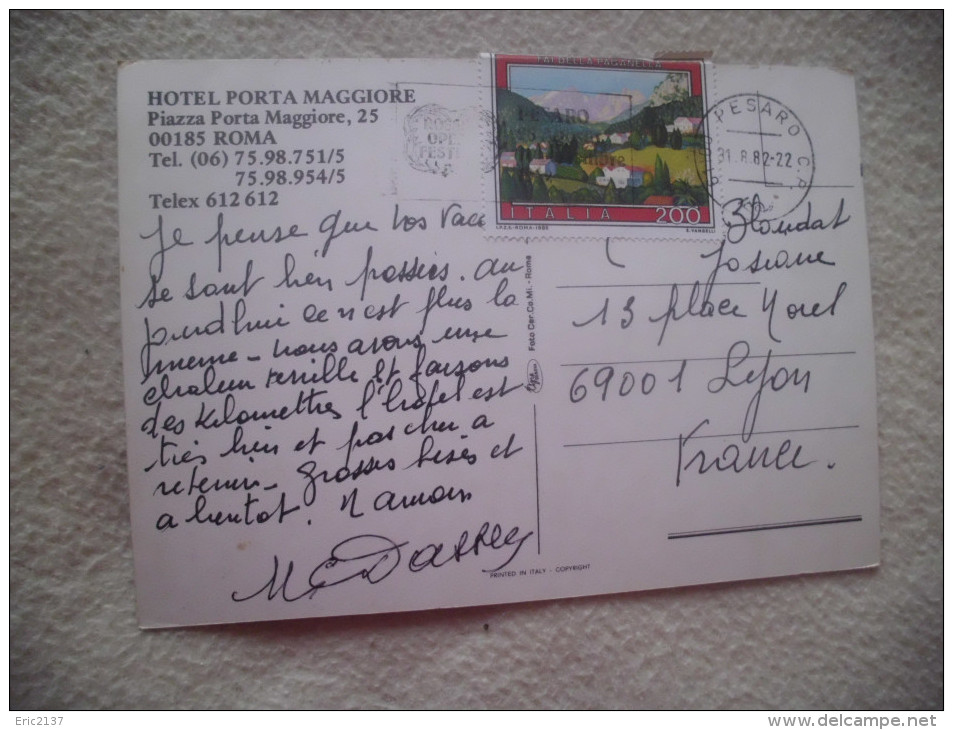 HOTEL PORTA MAGGIORE
Piazza Porta Maggiore, 25
00185 ROMA
Tel. (06) 75.98.751/5
75.98.954/5
Telex 612 612
FAI DELLA PAGANELLA
ITALIA 200
I.P.Z.S.-ROMA-1982
E. VANGELLI
PESARO
PESARO C.P.
31.8.82-22
Je pense que vos vac
se sont bien passées. au
jourdhui ce n'est plus la
meme - nous avons une
chaleur terrible et faisons
des Kilometres l'hotel est
très bien et pas cher a
retenir - grosses bises et
a bientot.
Josiane
13 place Morel
69001 Lyon
France.
Foto Cer.Co.Mi. - Roma
PRINTED IN ITALY - COPYRIGHT
Eric2137
www.delcampe.net